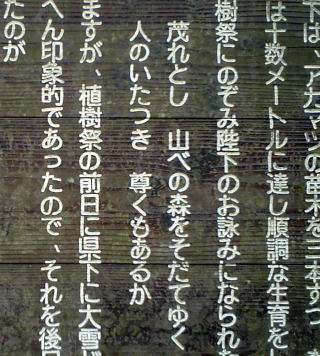 下は、アカマツの苗木を三本ずつ
は十数メートルに達し順調な生育を
樹祭にのぞみ陛下のお詠みになられ
茂れとし　山べの森をそだてゆく
人のいたつき　尊くもあるか
ますが、植樹祭の前日に県下に大雪が
へん印象的であったので、それを後日
たのが